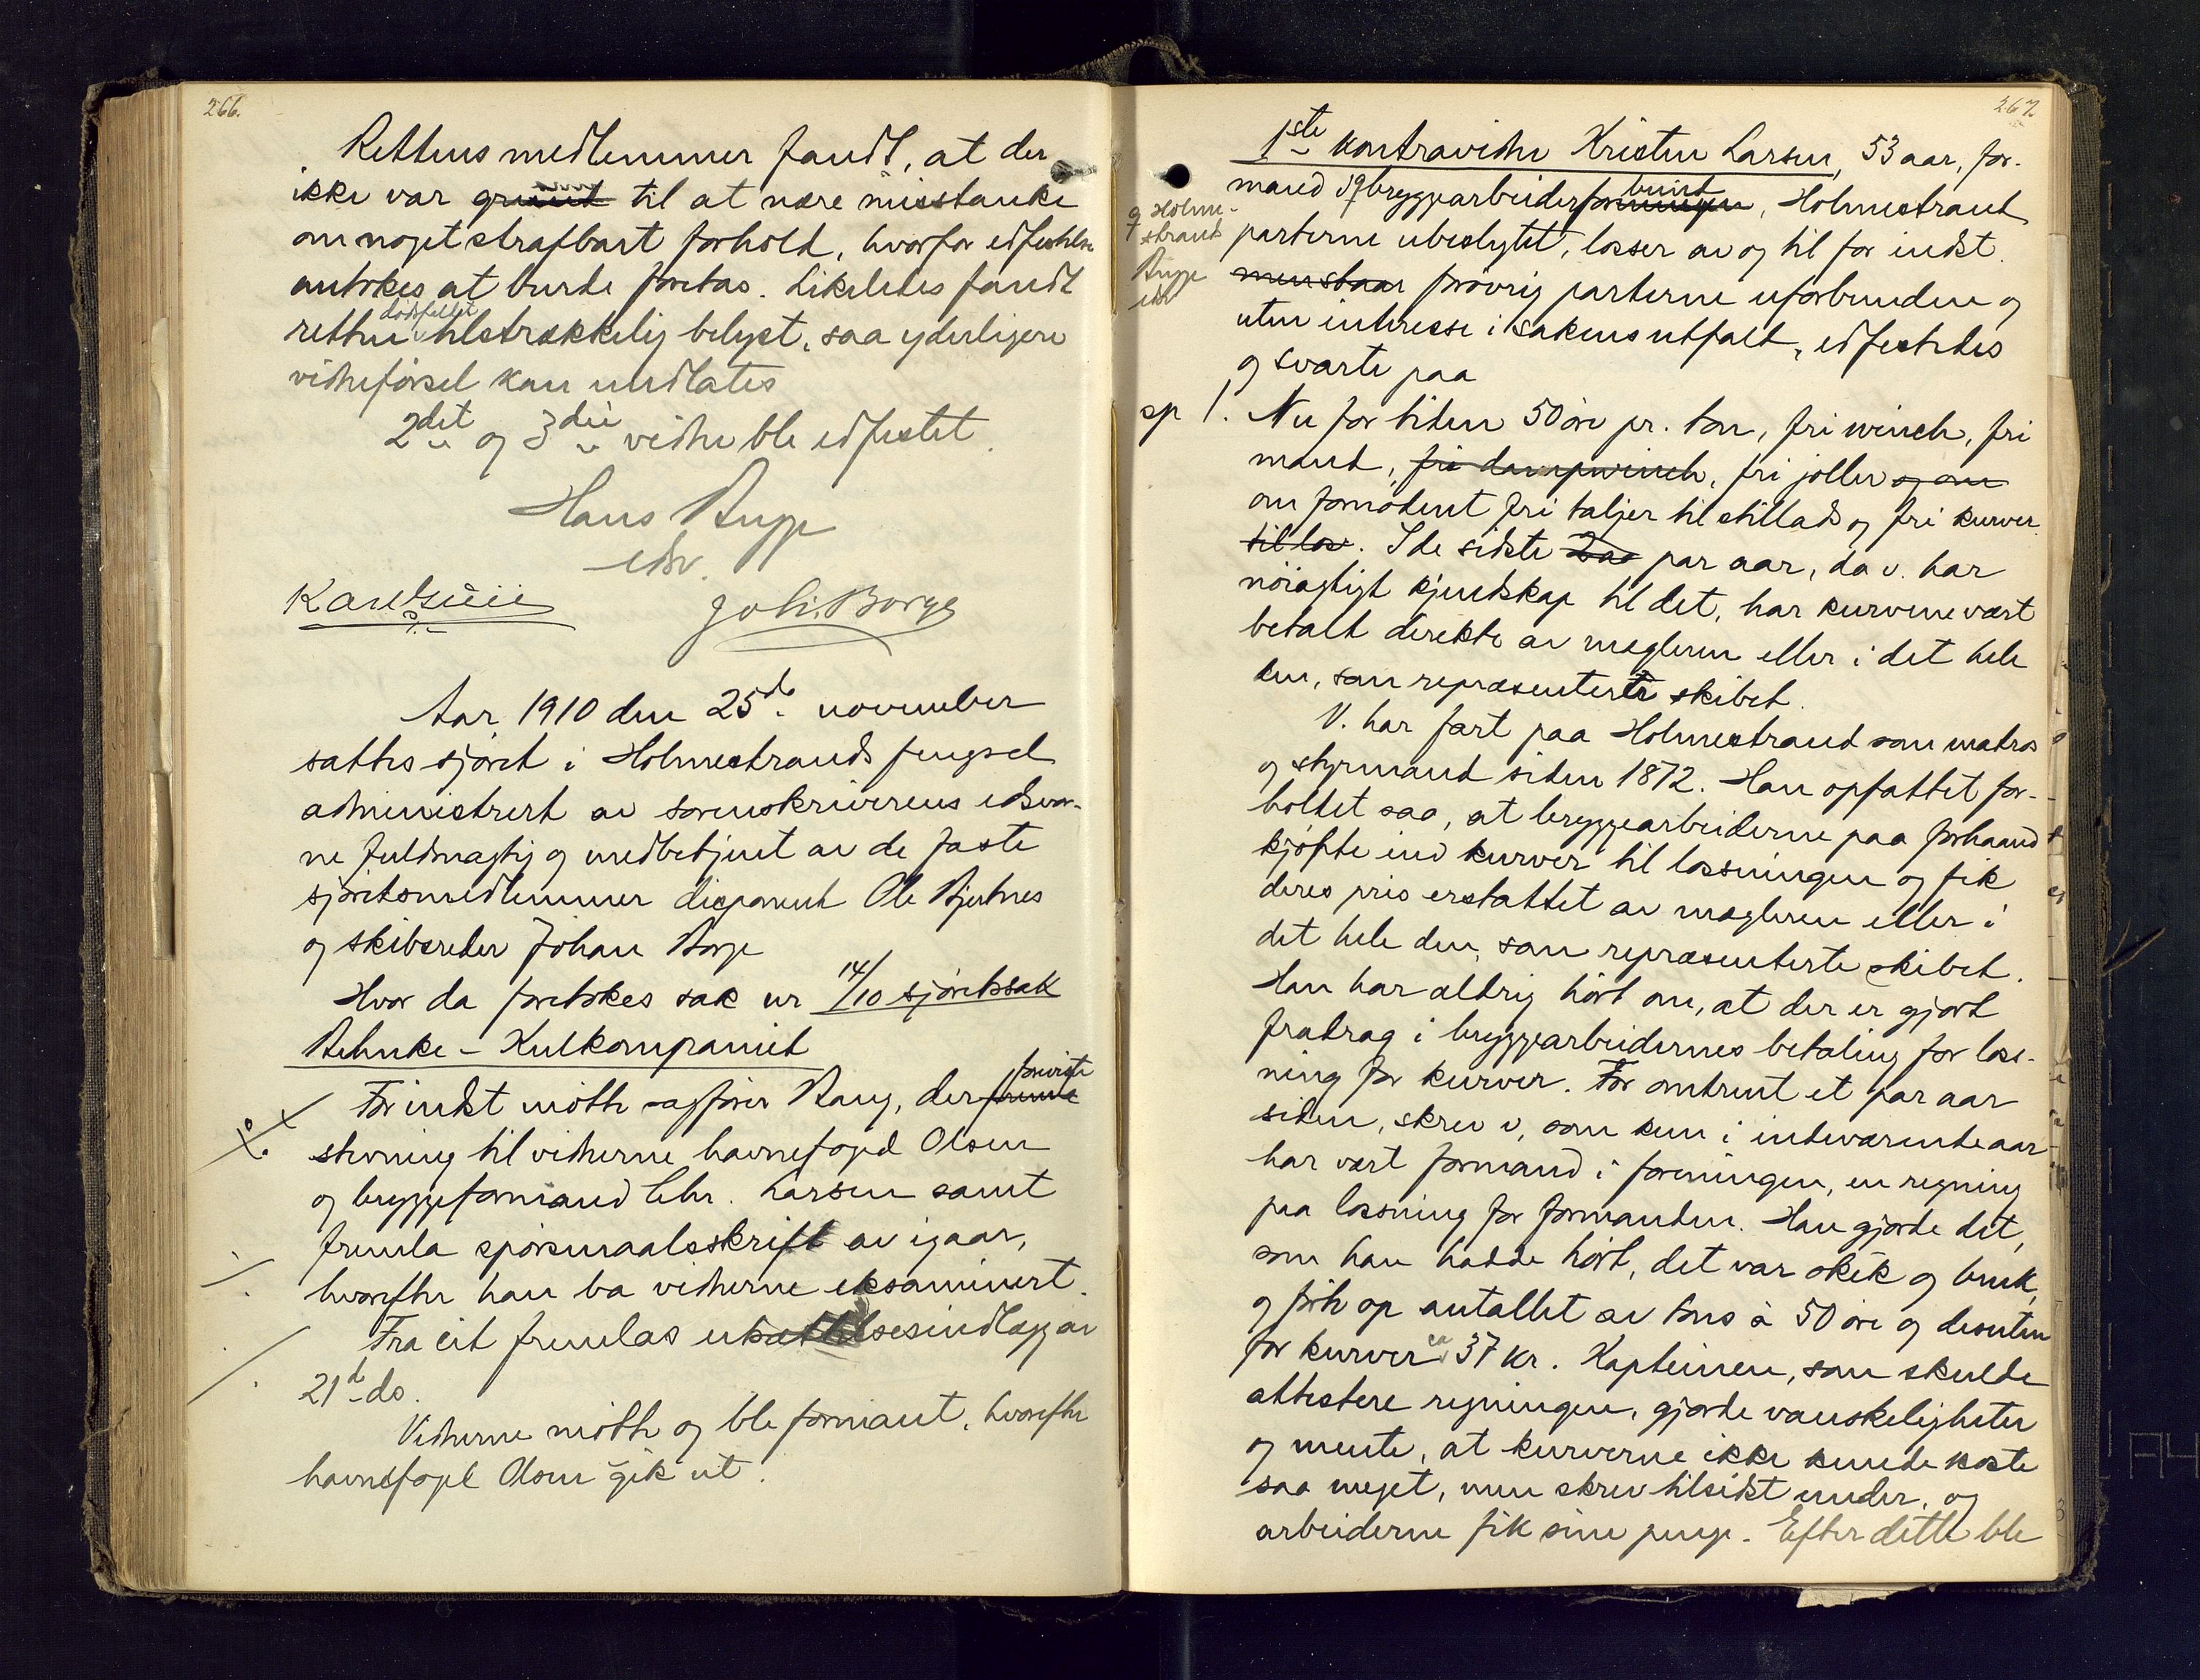 266.
Rettens medlemmer fandt, at der
ikke var grund til at nære misstanke
om noget strafbart forhold, hvorfor edfestelse
antokes at burde foretas. Likeledes fandt
dødsfallet
retten tilstrækkelig belyst, saa yderligere
vidneførsel kan undlates
2det og 3die vidne ble edfestet.
Hans Bugge
edsv.
Karl
Joh. Borge
Aar 1910 den 25de november
sattes sjøret i Holmestrands fengsel
administrert av sorenskriverens edsvor-
ne fuldmægtig og medbetjent av de faste
sjøretsmedlemmer disponent Ole Bjertnes
og skibsreder Johan Borge
Hvor da foretokes sak nr 14/10 sjøretssak
Behnke – Kulkompaniet
foreviste
For indst møtte sagfører Bang, der fremla
stevning til vidnerne havnefoged Olsen
og bryggeformand Chr. Larsen samt
fremla spørsmaalsskrift av igaar,
hvorefter han ba vidnerne eksaminert.
Fra cit fremlas utsættelsesindlæg av
21de ds.
Vidnerne møtte og ble formant, hvorefter
havnefoged Olsen gik ut.
267.
1ste kontravidne Kristen Larsen, 53 aar, for-
buind
mand i bryggearbeiderforeningen, Holmestrand
og Holme-
strand
Bugge
edsv
parterne ubeslegtet, losser av og til for indst.
men staar forøvrig parterne uforbunden og
uten interesse i sakens utfald, edfestedes
og svarte paa
sp 1. Nu for tiden 50 øre pr. ton, fri winch, fri
mand, fri dampwinch, fri joller og om
om fornødent fri taljer til stillads og fri kurver
til los. I de sidste 2 aa par aar, da v. har
nøiagtigt kjendskap til det, har kurvene vært
betalt direkte av mægleren eller i det hele
den, som repræsenterte skibet.
V. har fart paa Holmestrand som matros
og styrmand siden 1872. Han opfattet for-
holdet saa, at bryggearbeiderne paa forhaand
kjøpte ind kurver til losningen og fik
deres pris erstattet av mægleren eller i
det hele den, som repræsenterte skibet.
Han har aldrig hørt om, at der er gjort
fradrag i bryggearbeidernes betaling for los-
ning for kurver. For omtrent et par aar
siden, skrev v, som kun i indeværende aar
har vært formand i foreningen, en regning
paa losning for formanden. Han gjorde det,
som han hadde hørt, det var skik og bruk,
og førte op antallet av tons à 50 øre og desuten
for kurver ca 37 kr. Kapteinen, som skulde
attestere regningen, gjorde vanskeligheter
og mente, at kurverne ikke kunde koste
saa meget, men skrev tilsidst under, og
arbeiderne fik sine penge. Efter dette ble